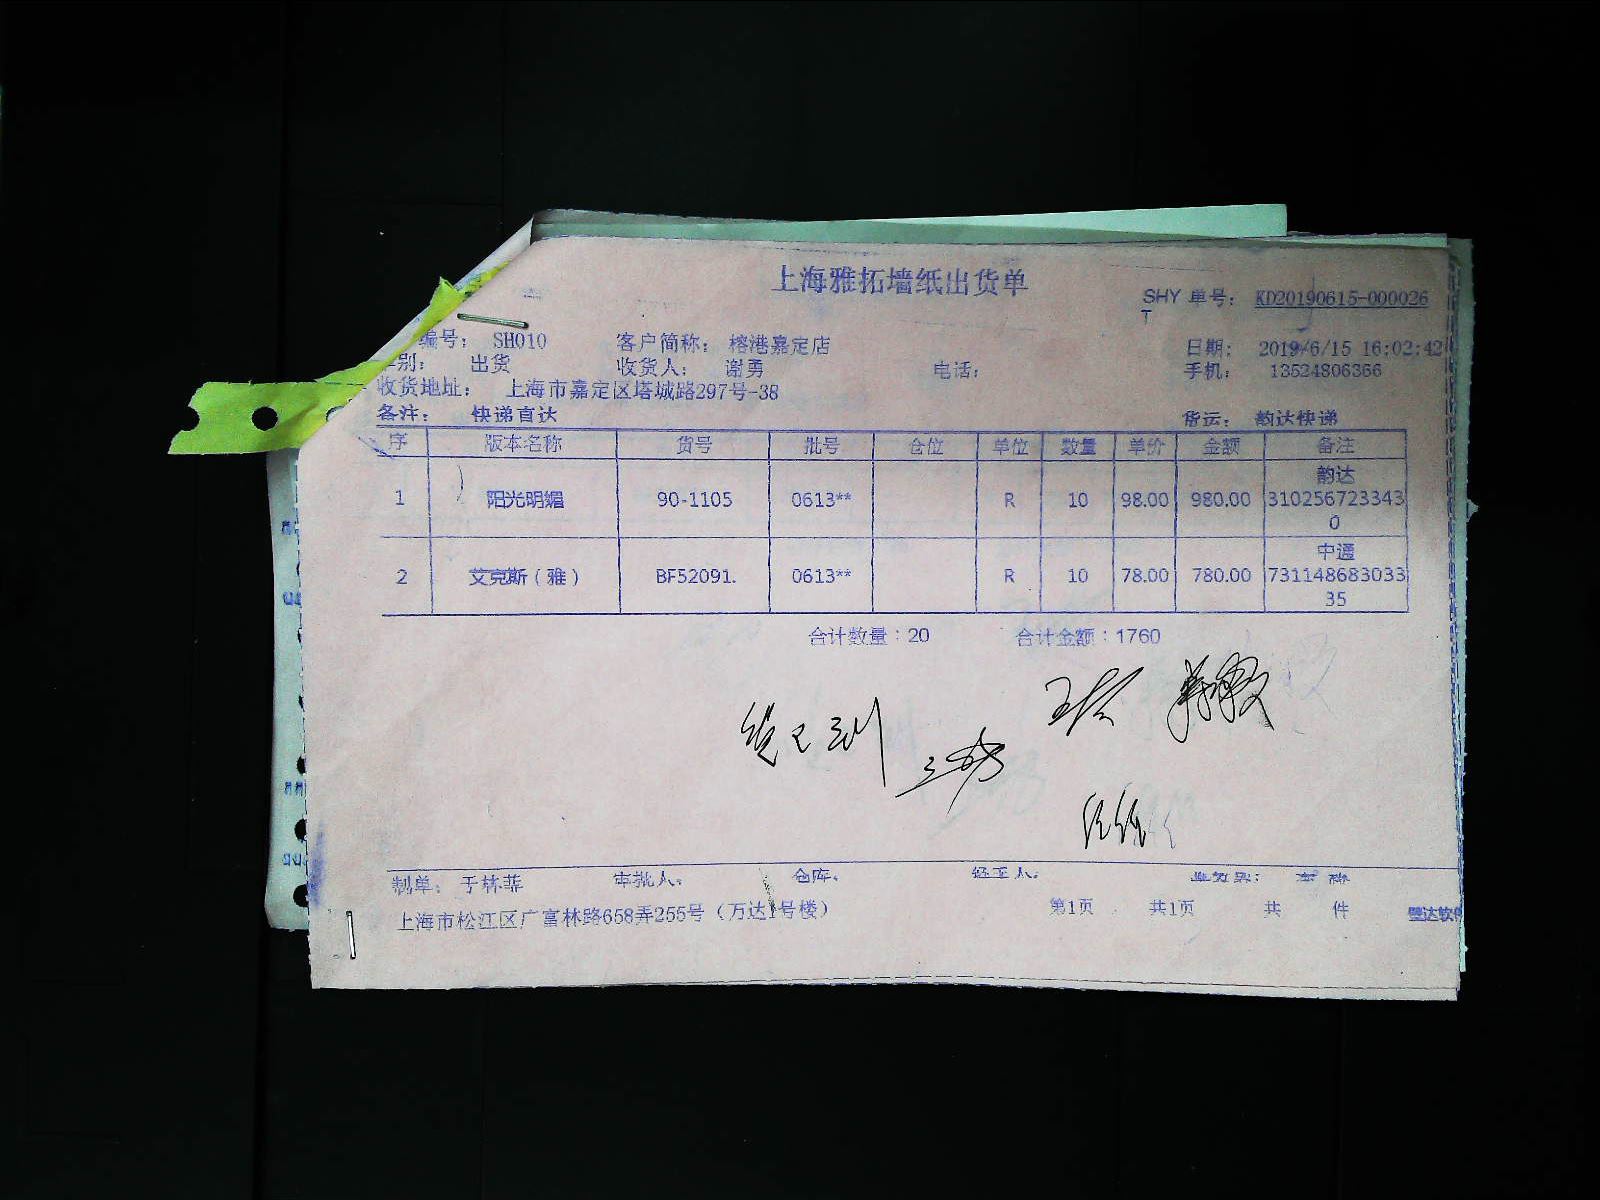 上海雅拓墙纸出货单
SHY 单号： KD20190615-000026
T
编号： SH010 客户简称： 榕港嘉定店 日期： 2019/6/15 16:02:42
别： 出货 收货人： 谢勇 电话： 手机： 13524806366
收货地址： 上海市嘉定区塔城路297号-38
备注： 快递直达 货运： 韵达快递
序 版本名称 货号 批号 仓位 单位 数量 单价 金额 备注
1 阳光明媚 90-1105 0613** R 10 98.00 980.00 韵达
310256723343
0
2 艾克斯（雅） BF52091. 0613** R 10 78.00 780.00 中通
731148683033
35
合计数量：20 合计金额：1760
制单： 于林菲 审批人： 仓库： 经手人： 业务员：
上海市松江区广富林路658弄255号（万达1号楼） 第1页 共1页 共 件